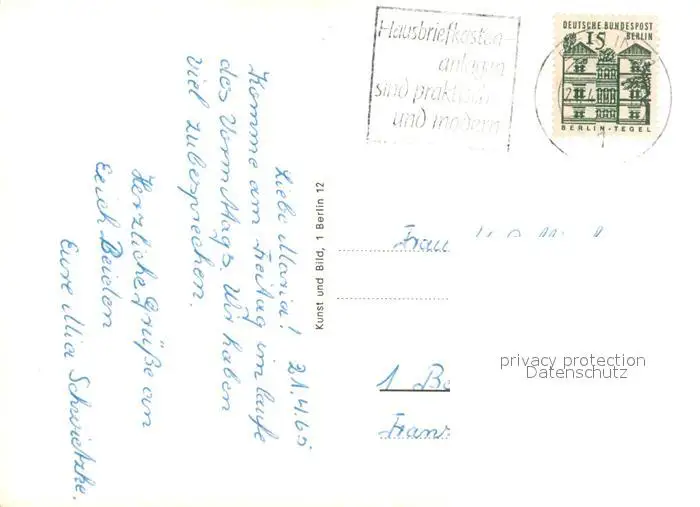 Hausbriefkasten-
anlagen
sind praktisch
und modern
DEUTSCHE BUNDESPOST
15 BERLIN
BERLIN-TEGEL
Liebe Maria! 21.4.65
Komme am Freitag im laufe
des Vormittags. Wir haben
viel zubesprechen.
Herzliche Grüße an
Eeich Beiden
Eure Mia Schwietzke.
Kunst und Bild, 1 Berlin 12
Frau
1 Be
Franz
privacy protection
Datenschutz